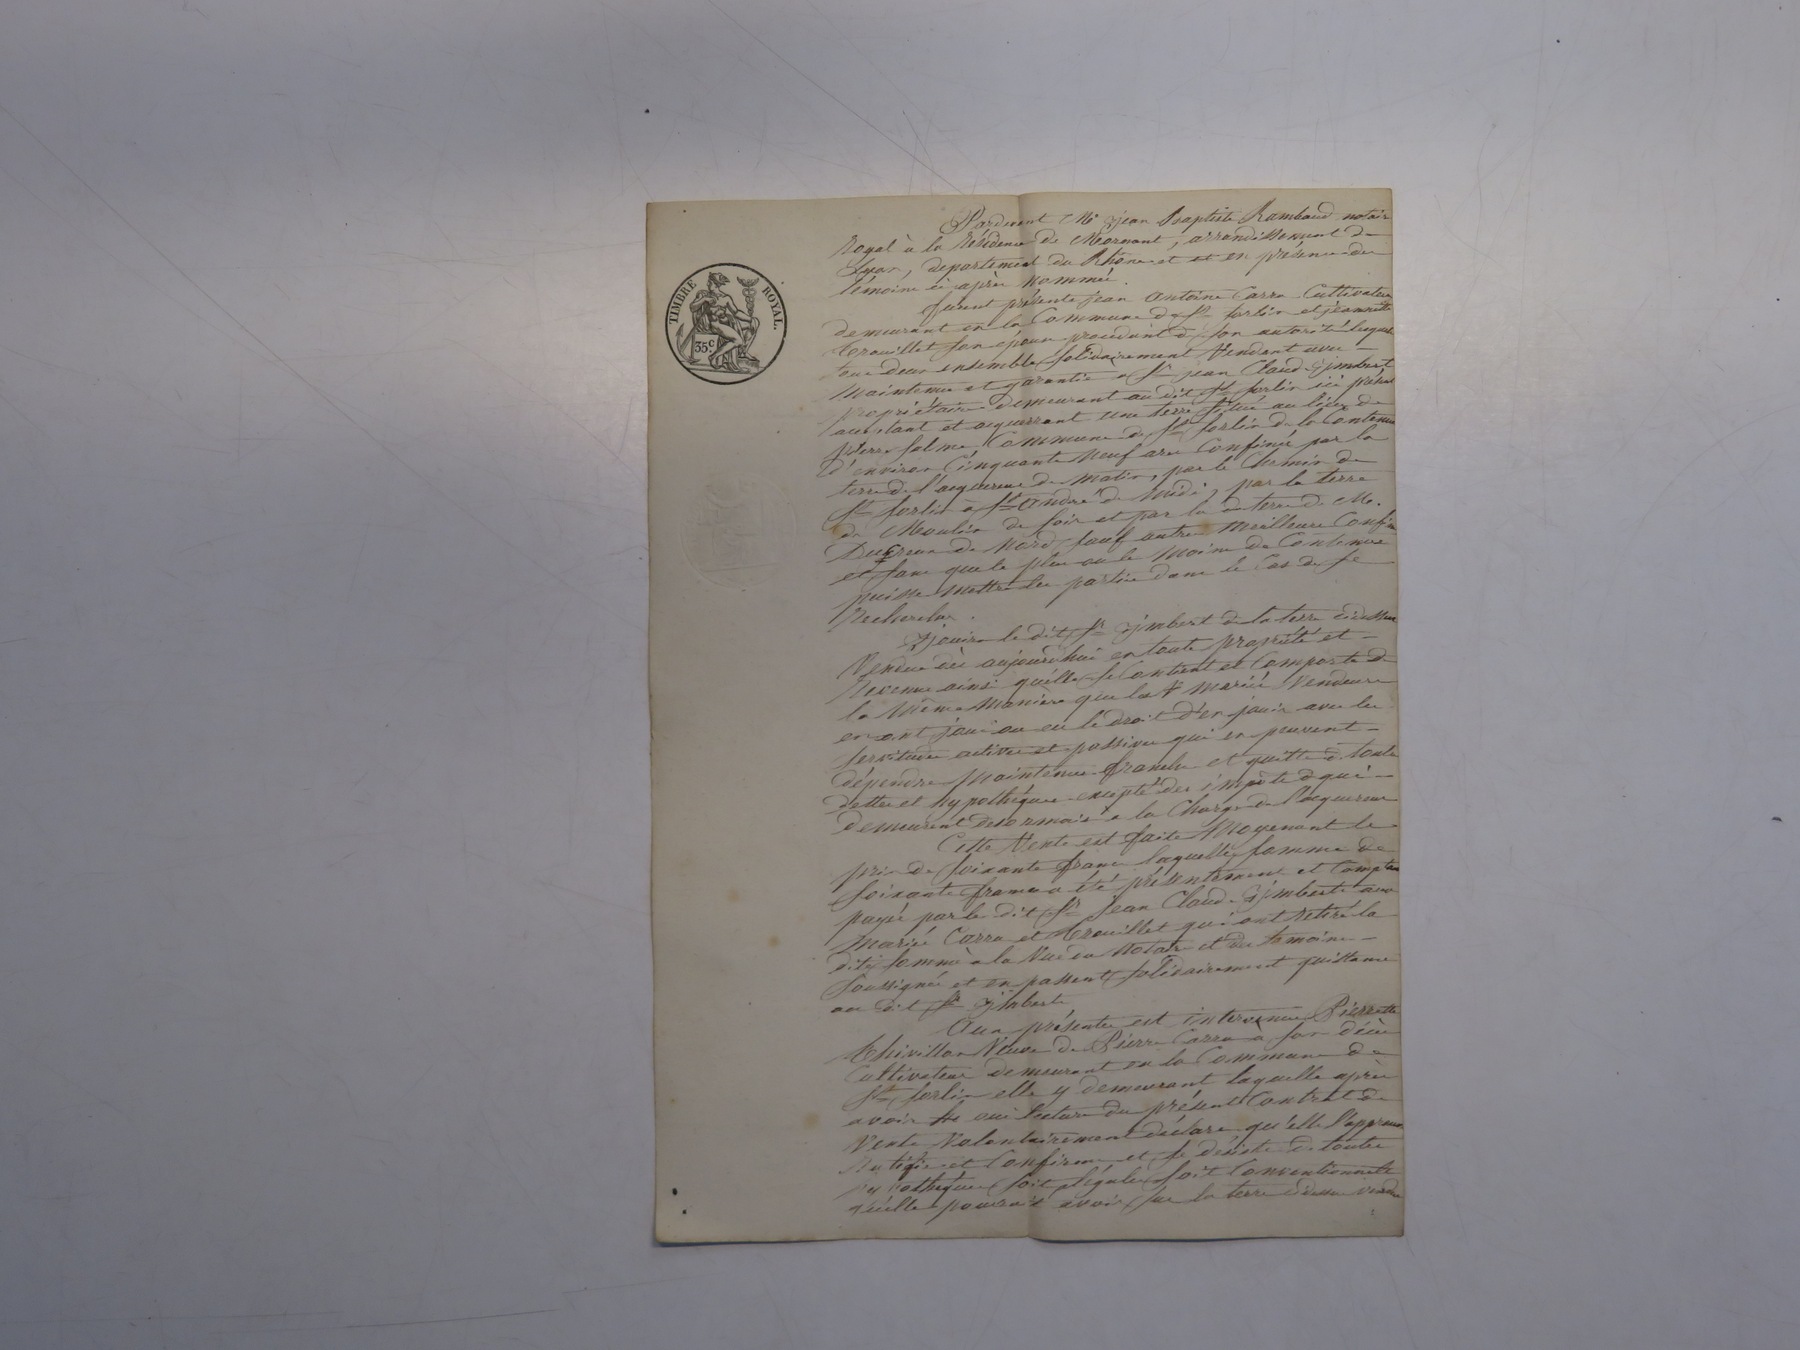 TIMBRE ROYAL.
35 c.
Pardevant Me jean Baptiste Rambaud notaire
Royal à la Résidence de Mornant, arrondissement de
Lyon, departement du Rhone et et en présence des
témoins ci après nommés.
furent présents jean Antoine Carra Cultivateur
demeurant en la Commune de St Sorlin et jeannette
trouillet son épouse procédant de son autorité lesquels
tous deux ensemble solidairement Vendent avec
Maintenue et garantie a Sr jean Claude jmbert
propriétaire demeurant au dit St Sorlin ici présent
acceptant et acquerrant une terre située au lieu de
pierre Commune de St Sorlin de la Contenue
d'environ Cinquante neuf ares Confinée par la
terre de l'acquereur de matin, par le Chemin de
St Sorlin à St André de Midi, par la terre
de Moulin de soir et par la terre de M.
Ducreux de Nord sauf autres Meilleurs Confins
et sans que le plus ou le Moins de Contenue
puisse mettre les parties dans le Cas de se
Rechercher.
Jouira le dit Sr jmbert de la terre cidessus
Vendue dès aujourd'hui en toute propriété et
Revenus ainsi quélle se Contient et Comporte de
la Même Manière que les Mariés Vendeurs
en ont joui ou eu le droit d'en jouir avec les
servitudes actives et passives qui en peuvent
dépendre Maintenue franche et quitte de toute
dettes et hypothéques excepté des impôts qui
demeurent desormais a la Charge de l'acquereur
Cette Vente est faite Moyenant le
prix de soixante francs laquelle somme de
soixante francs a été présentement et Comptant
payée par le dit Sr Jean Claude jmbert aux
Mariés Carra et trouillet qui ont retiré la
dite somme a la Vue du Notaire et des temoins
soussignés et en passent solidairement quittance
au dit Sr jmbert
Aux présentes est intervenue Pierrette
Thivillon Veuve de Pierre Carra à son décès
Cultivateur demeurant en la Commune de
St Sorlin elle y demeurant laquelle après
avoir oui lecture du présent Contrat de
Vente Volontairement déclare qu'elle l'approuve
Ratifie et Confirme et se désiste de toutes
hypothéques soit légale soit Conventionnelle
qu'elle pourrait avoir sur la terre cidessus vendue